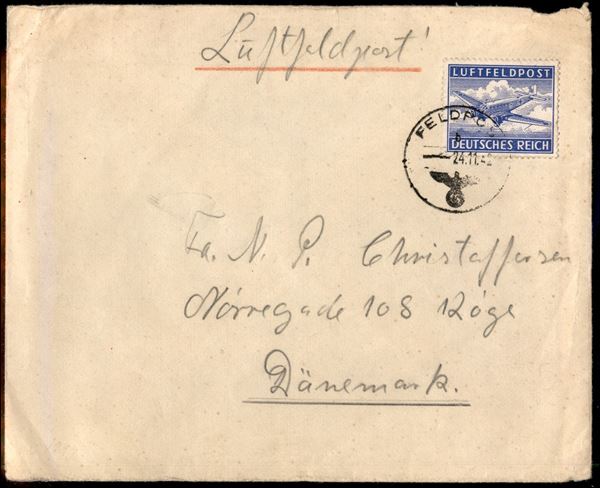 Luftfeldpost!
LUFTFELDPOST
DEUTSCHES REICH
FELDPOST
b
24.11.42
Fa. N. P. Christaffersen
Nórregade 108 Köge
Dänemark.